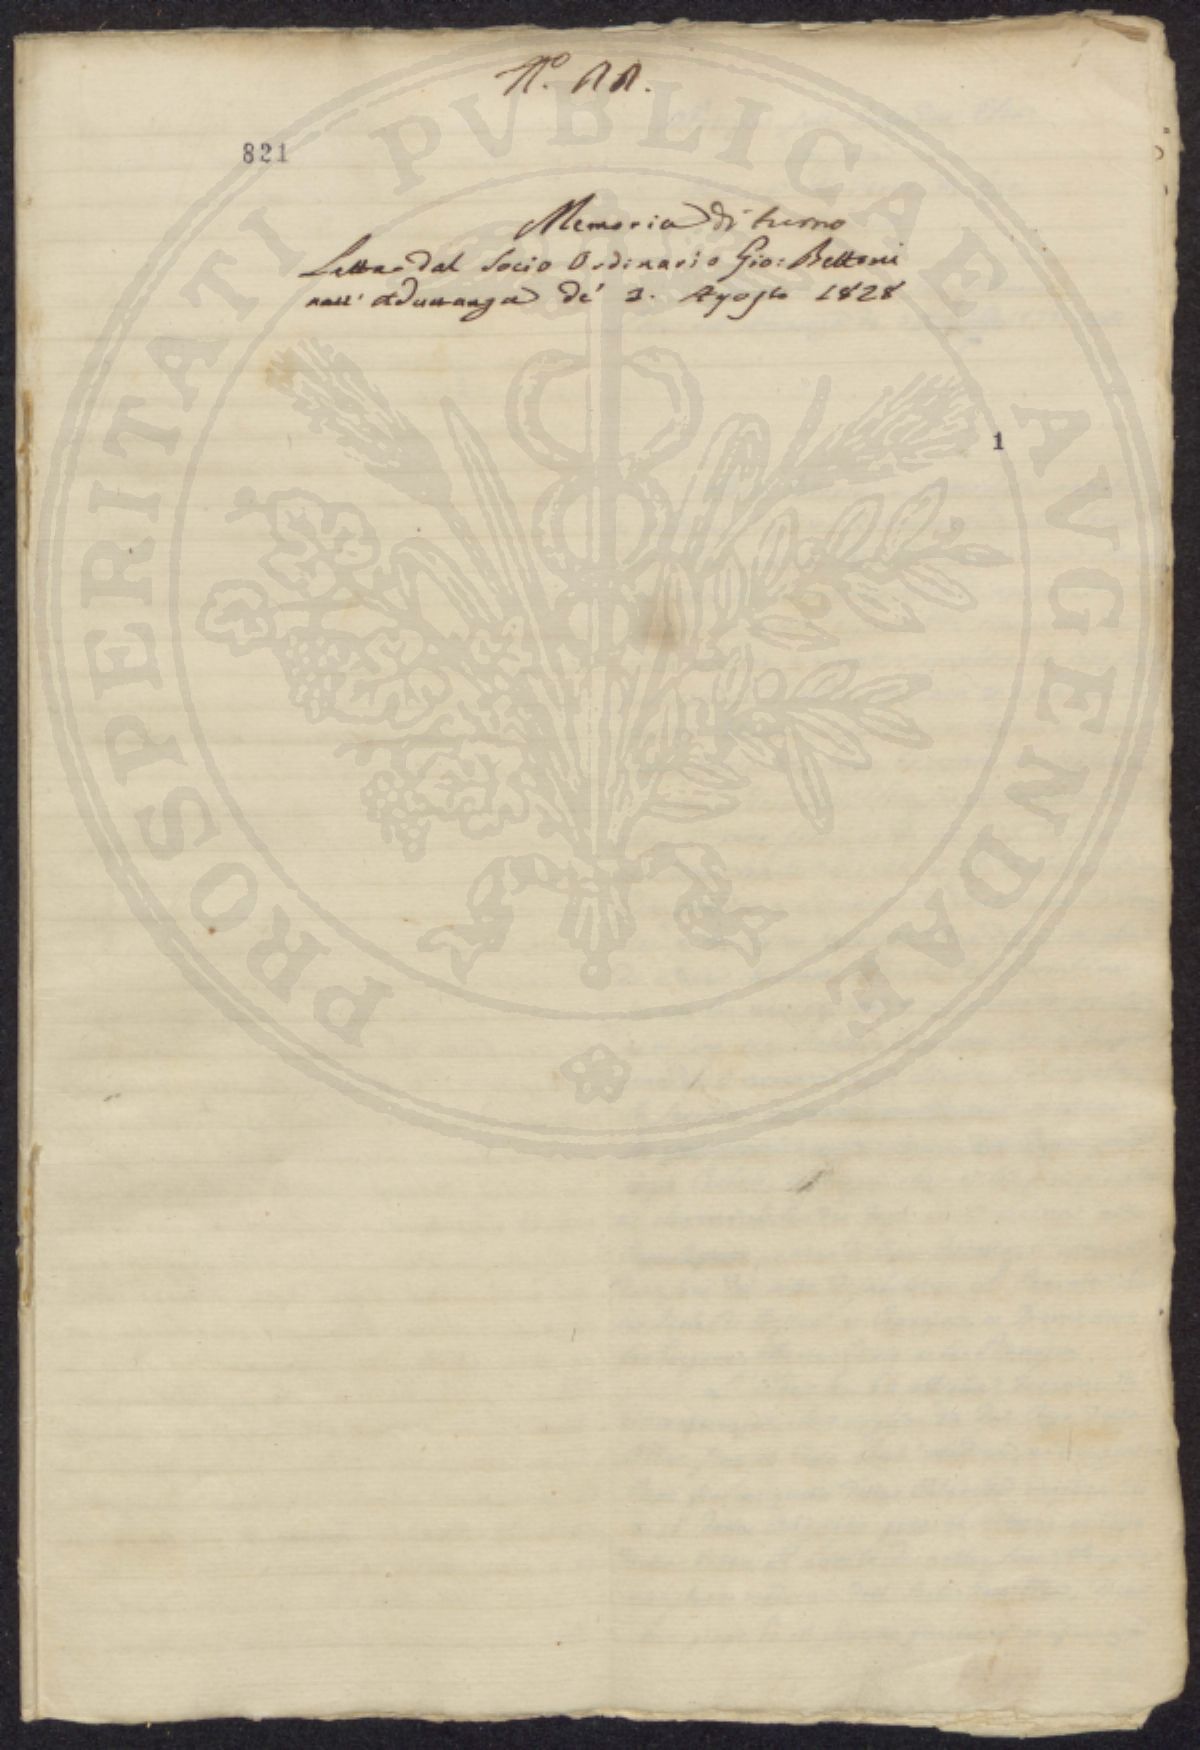 N.º 11.
821
Memoria di turno
Letta dal Socio Ordinario Gio: Bettoni
nell' Adunanza de' 3. Agosto 1828
1
PROSPERITATI PVBLICAE AVGENDAE